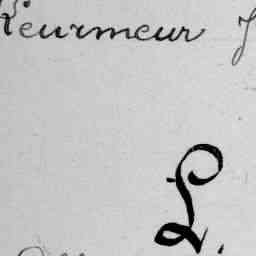 Keurmeur J
L.